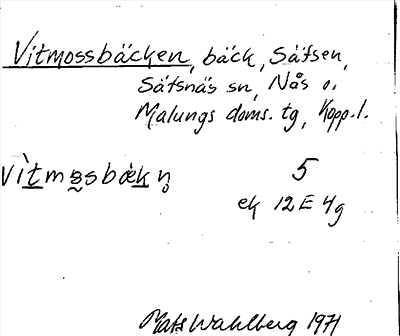 Vitmossbäcken, bäck, Säfsen,
Säfsnäs sn, Nås o.
Malungs doms. tg, Kopp. l.
5
ek 12E 4g
Mats Wahlberg 1971